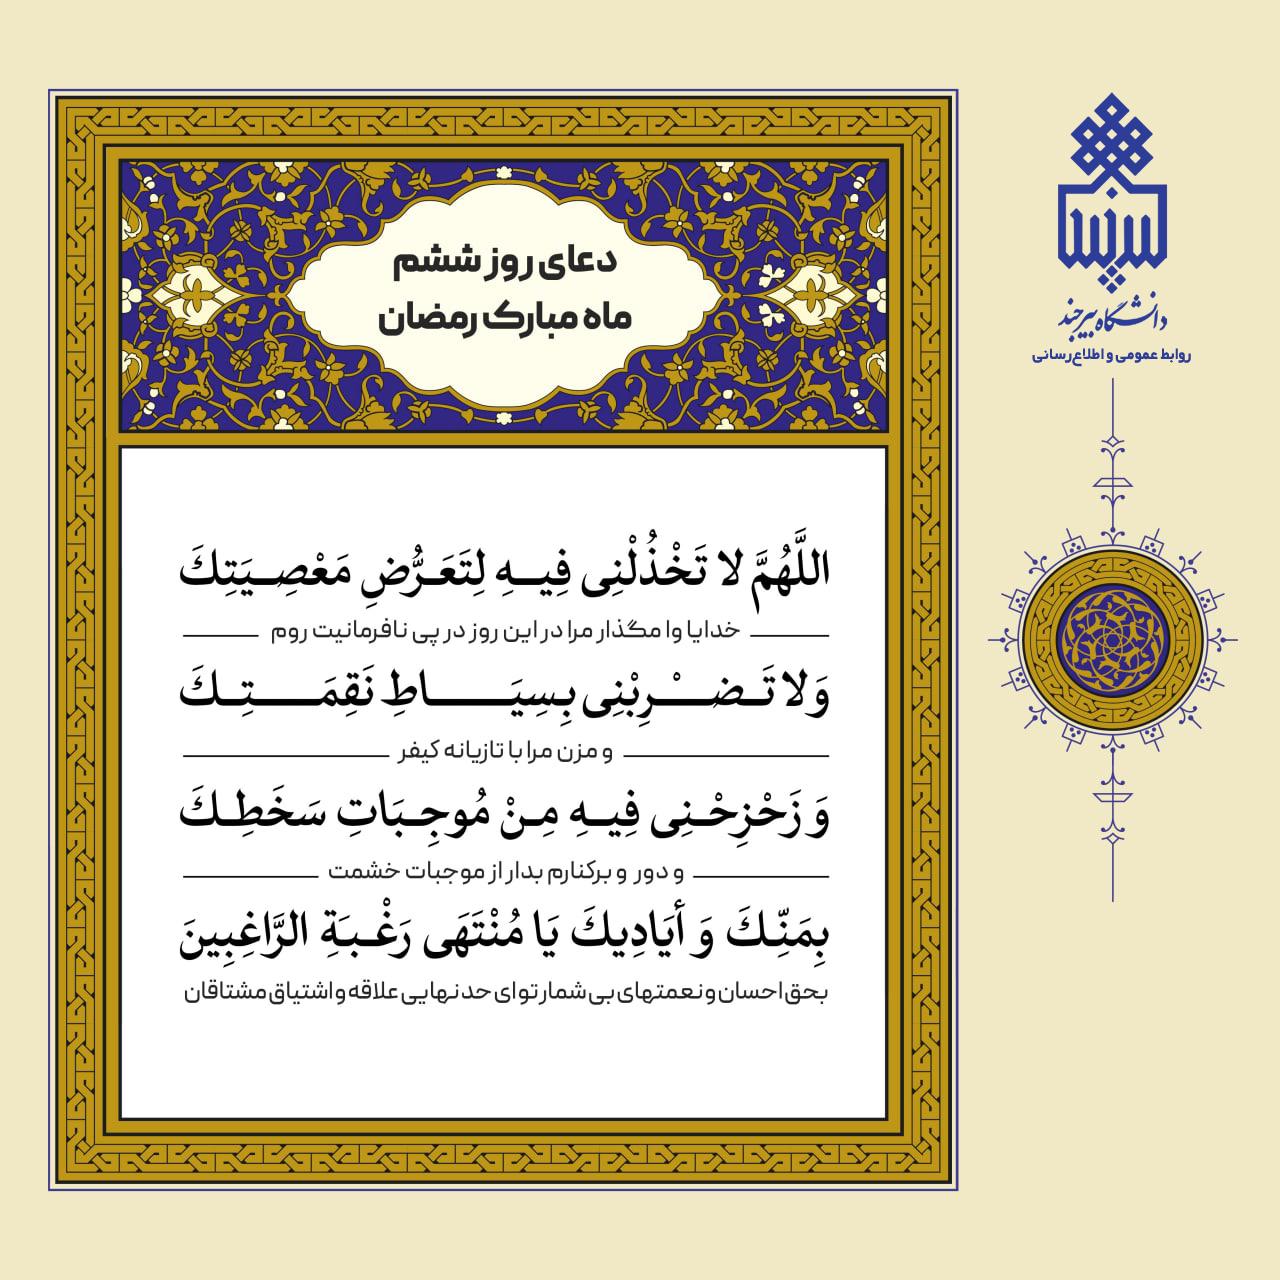 دعای روز ششم
ماه مبارک رمضان
اللَّهُمَّ لا تَخْذُلْنِی فِیهِ لِتَعَرُّضِ مَعْصِیَتِكَ
خدایا وا مگذار مرا در این روز در پی نافرمانیت روم
وَلا تَضْرِبْنِی بِسِیَاطِ نَقِمَتِكَ
و مزن مرا با تازیانه کیفر
وَ زَحْزِحْنِی فِیهِ مِنْ مُوجِبَاتِ سَخَطِكَ
و دور و برکنارم بدار از موجبات خشمت
بِمَنِّكَ وَ أَیَادِیكَ یَا مُنْتَهَى رَغْبَةِ الرَّاغِبِینَ
بحق احسان و نعمتهای بی شمار تو ای حد نهایی علاقه و اشتیاق مشتاقان
دانشگاه بیرجند
روابط عمومی و اطلاع‌رسانی